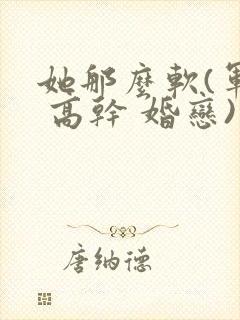 她那麼軟(軍
高幹 婚戀)
唐納德